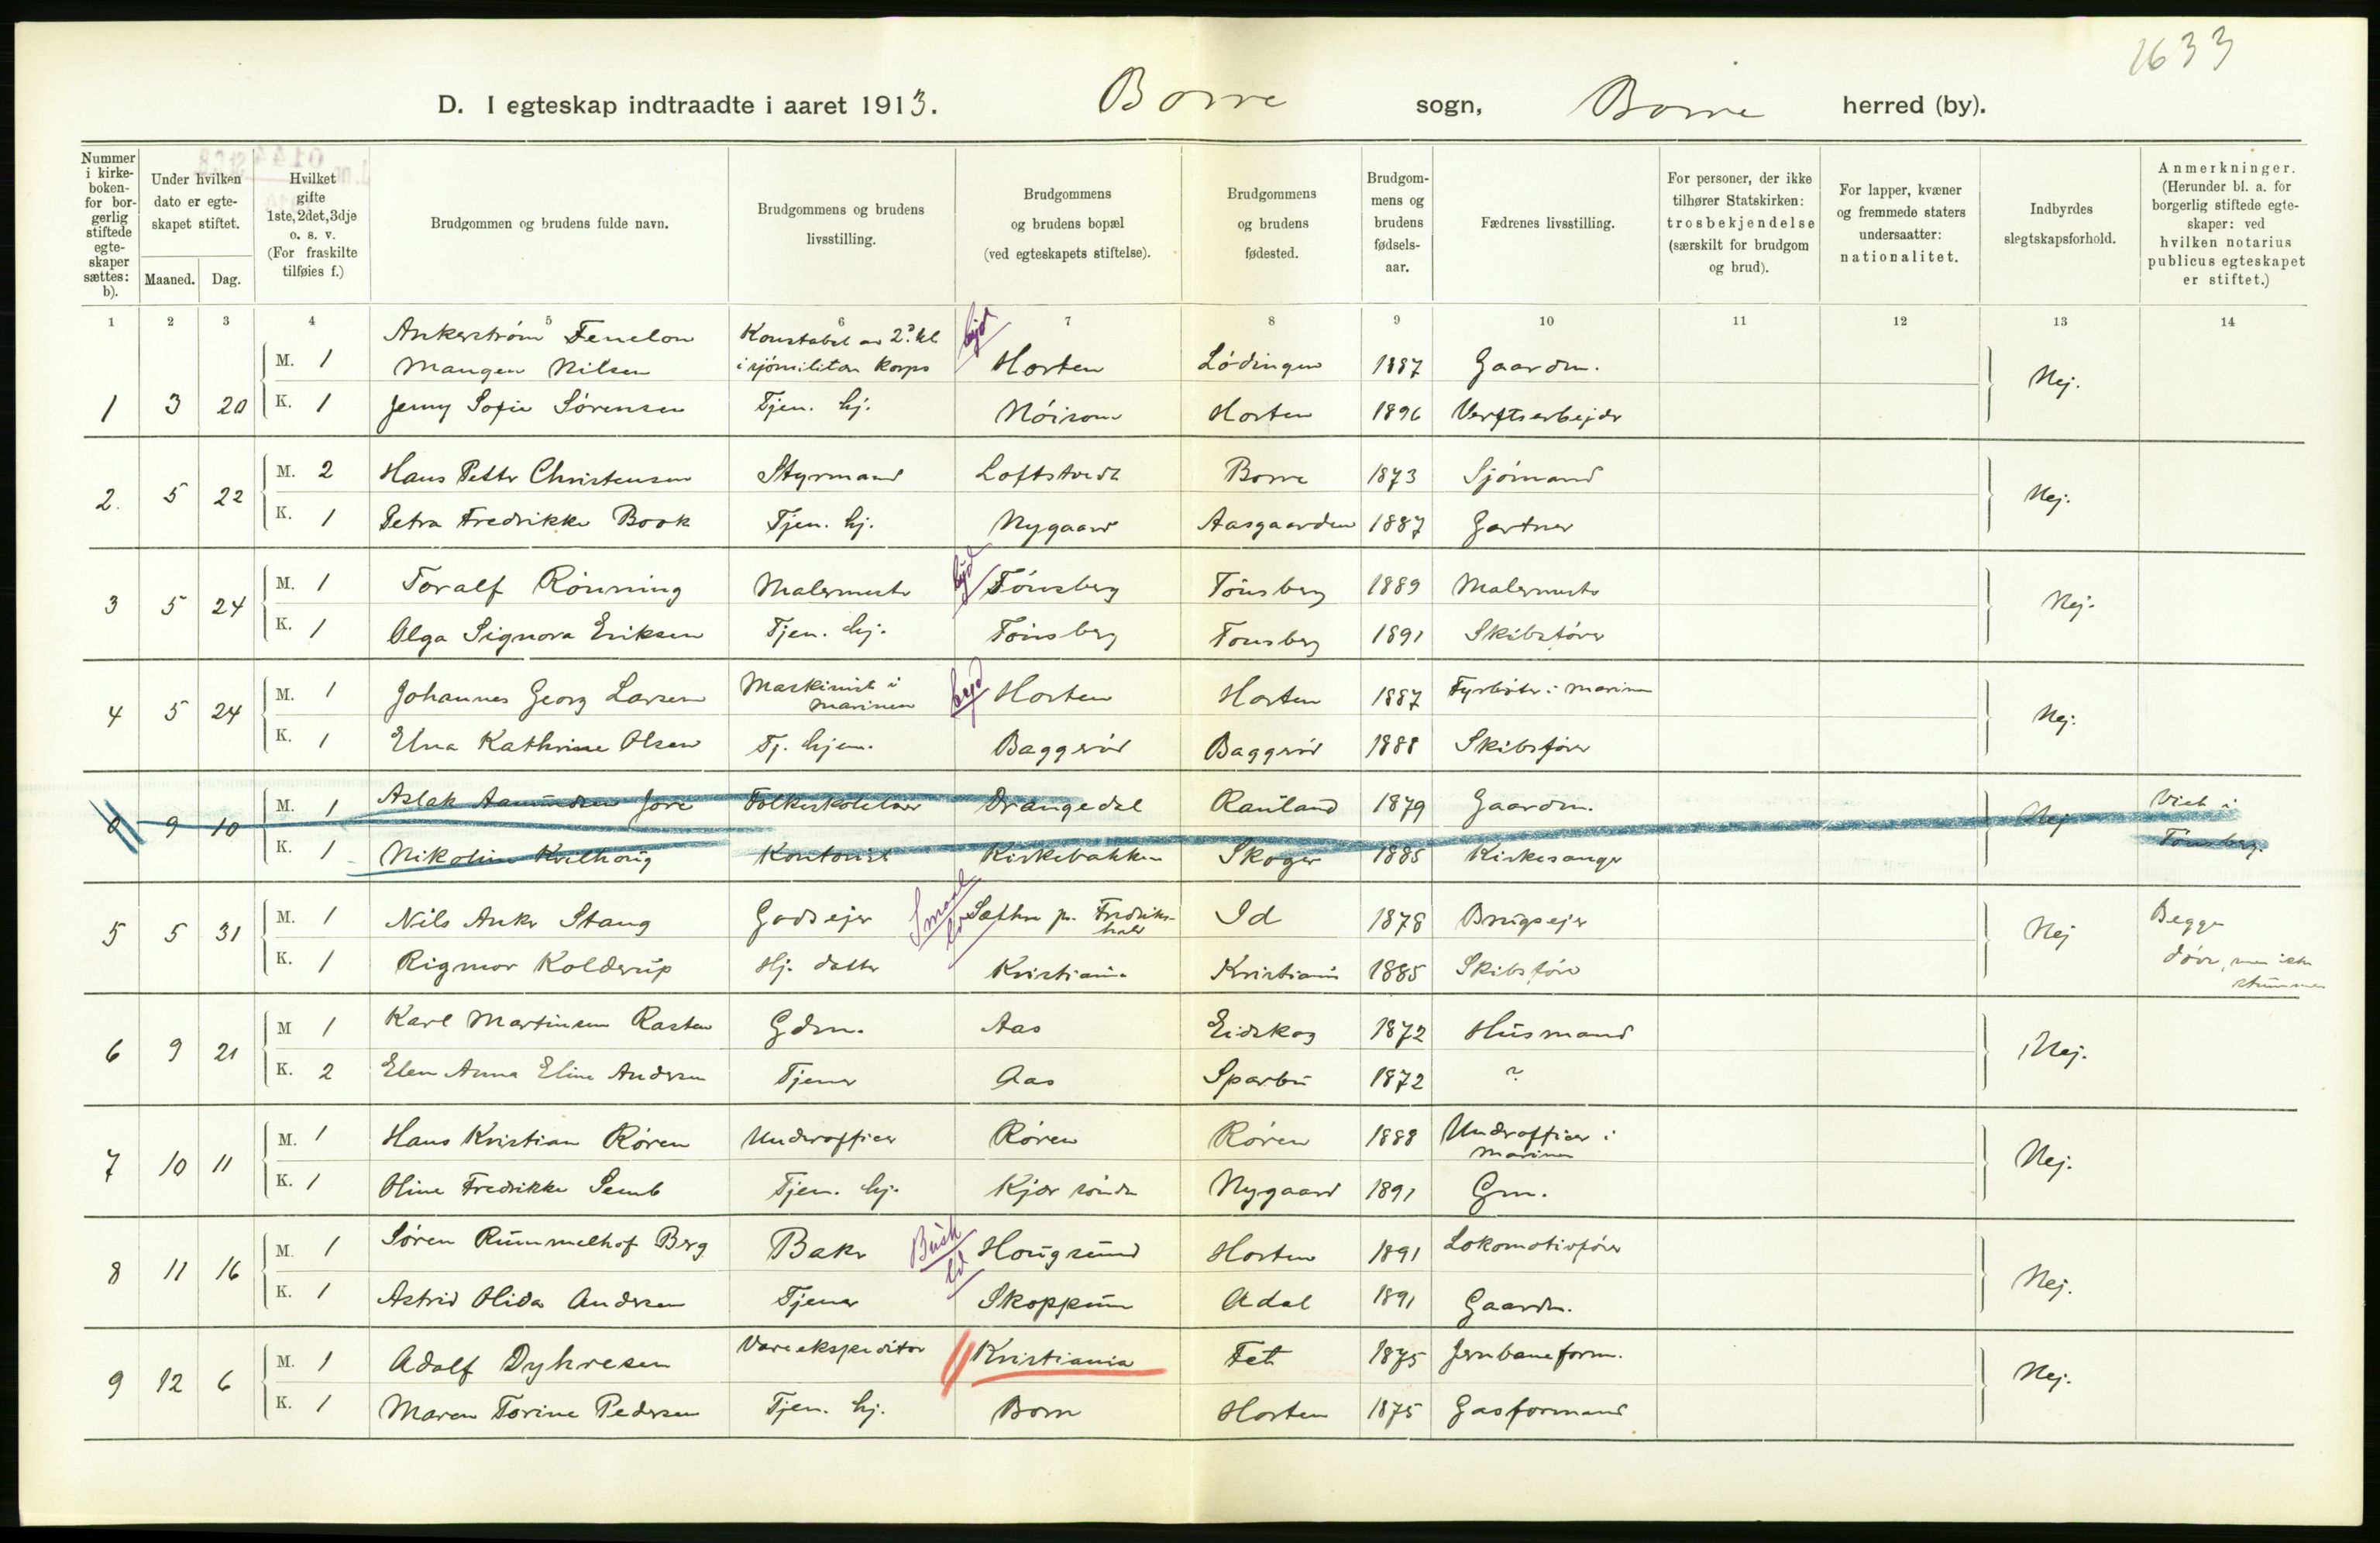 1633
D. I egteskap indtraadte i aaret 1913. Borre sogn, Borre herred (by).
Nummer i kirkeboken- for borgerlig stiftede egteskaper sættes: b).
Under hvilken dato er egteskapet stiftet.
Maaned. Dag.
Hvilket gifte 1ste, 2det, 3dje o. s. v. (For fraskilte tilføies f.)
Brudgommen og brudens fulde navn.
Brudgommens og brudens livsstilling.
Brudgommens og brudens bopæl (ved egteskapets stiftelse).
Brudgommens og brudens fødested.
Brudgommens og brudens fødselsaar.
Fædrenes livsstilling.
For personer, der ikke tilhører Statskirken: trosbekjendelse (særskilt for brudgom og brud).
For lapper, kvæner og fremmede staters undersaatter: nationalitet.
Indbyrdes slegtskapsforhold.
Anmerkninger. (Herunder bl. a. for borgerlig stiftede egteskaper: ved hvilken notarius publicus egteskapet er stiftet.)
1 2 3 4 5 6 7 8 9 10 11 12 13 14
Ankerstrøm Fenelon Konstabel av 2d kl byd
M. 1 Mangen Nilsen i sjømilitær Korps Horten Lødingen 1887 Gaardm. Nej.
1 3 20 K. 1 Jenny Sofie Sørensen Tjen. hj. Nøisom Horten 1896 Verftsarbejdr
M. 2 Hans Petter Christensen Styrmand Loftstvedt Borre 1873 Sjømand
2. 5 22 K. 1 Petra Fredrikke Book Tjen. hj. Nygaard Aasgaarden 1887 Gartner Nej.
M. 1 Toralf Rønning Malermestr byd Tønsberg Tønsberg 1889 Malermestr
3 5 24 K. 1 Olga Signora Eriksen Tjen. hj. Tønsberg Tønsberg 1891 Skibsfører Nej.
M. 1 Johannes Georg Larsen Maskinist i marinen byd Horten Horten 1887 Fyrbøter i marinen
4 5 24 K. 1 Elna Kathrine Olsen Tj. hjem. Baggerød Baggerød 1888 Skibsfører Nej.
M. 1 Aslak Aamundsen Jore Folkeskolelærer Drangedal Rauland 1879 Gaardm. Viet i
9 10 K. 1 Nikoline Kvelhaug Kontorist Kirkebakken Skoger 1885 Kirkesanger Nej Tønsberg.
M. 1 Nils Anker Stang Godsejer Smaal Sæthre p. Fredrikshald Id 1878 Brugsejer Begge
5 5 31 K. 1 Rigmor Kolderup Hj. datter Kristiania Kristiania 1885 Skibsfører Nej døve, men ikke stumme
M 1 Karl Martinsen Rasten Gdm. Aas Eidskog 1872 Husmand
6 9 21 K. 2 Elen Anna Eline Andersen Tjener Aas Sparbu 1872 ? Nej.
M. 1 Hans Kristian Røren Underofficer Røren Røren 1888 Underofficer i Marinen
7 10 11 K. 1 Oline Fredrikke Semb Tjen. hj. Kjær søndre Nygaard 1891 Gm. Nej.
M. 1 Søren Rummelhof Berg Baker Busk Hougsund Horten 1891 Lokomotivfører
8 11 16 K. 1 Astrid Olida Andersen Tjener Skoppum Adal 1891 Gaardm. Nej.
M. 1 Adolf Dyhresen Vareekspeditør Kristiania Fet 1875 Jernbaneform.
9 12 6 K. 1 Maren Torine Pedersen Tjen. hj. Borre Horten 1875 Gasformand Nej.